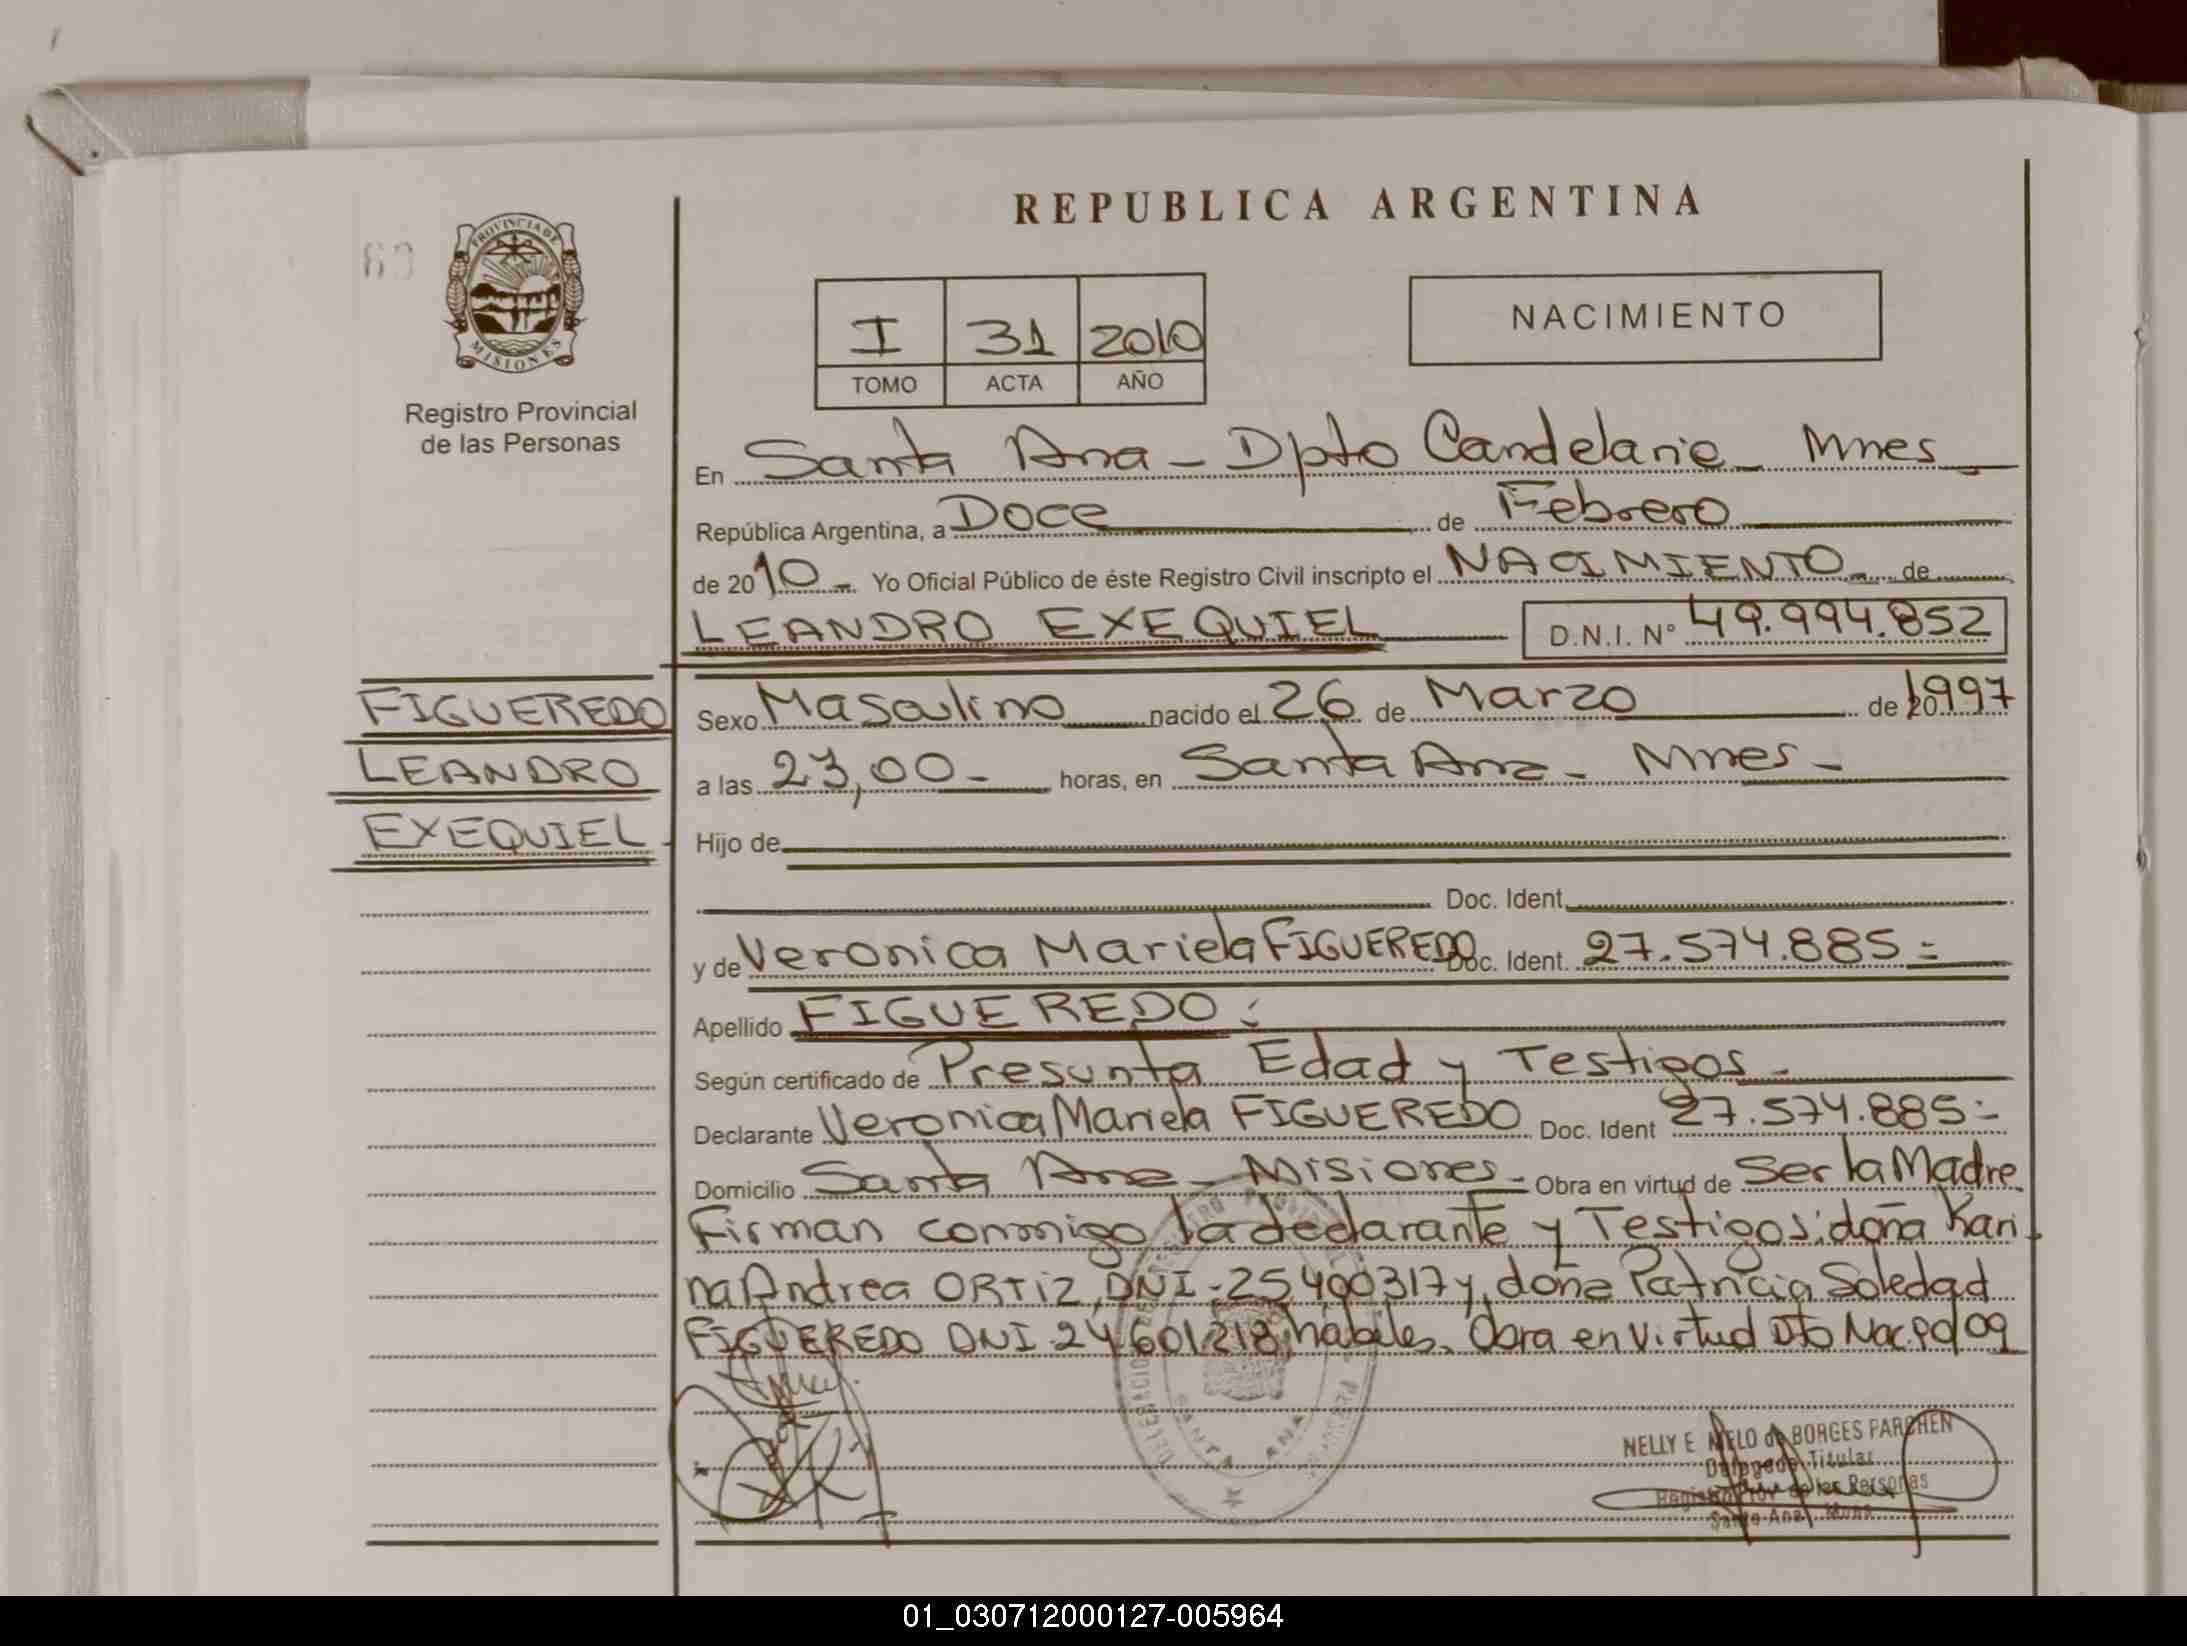 REPUBLICA ARGENTINA
PROVINCIA DE
MISIONES
Registro Provincial
de las Personas
I 31 2010
TOMO ACTA AÑO
NACIMIENTO
En Santa Ana - Dpto Candelaria - Mnes -
República Argentina, a Doce de Febrero
de 2010 - Yo Oficial Público de éste Registro Civil inscripto el NACIMIENTO - de
LEANDRO EXEQUIEL D.N.I. N° 49.994.852
FIGUEREDO
LEANDRO
EXEQUIEL -
Sexo Masculino nacido el 26 de Marzo de 1997
a las 23,00 - horas, en Santa Ana - Mnes -
Hijo de
Doc. Ident.
y de Veronica Mariela FIGUEREDO Doc. Ident. 27.574.885 =
Apellido FIGUEREDO :
Según certificado de Presunta Edad y Testigos -
Declarante Veronica Mariela FIGUEREDO Doc. Ident 27.574.885 =
Domicilio Santa Ana - Misiones - Obra en virtud de Ser la Madre
Firman conmigo la declarante y Testigos: doña Kari
na Andrea ORTIZ, DNI - 25.400317 y doña Patricia Soledad
FIGUEREDO DNI 24.601.218, habiles. Obra en virtud Dto Nac. 90/09
SANTA ANA
NELLY E. MELO de BORGES PARCHEN
Delegada Titular
Registro Prov. de las Personas
Santa Ana - Mnes
01_030712000127-005964